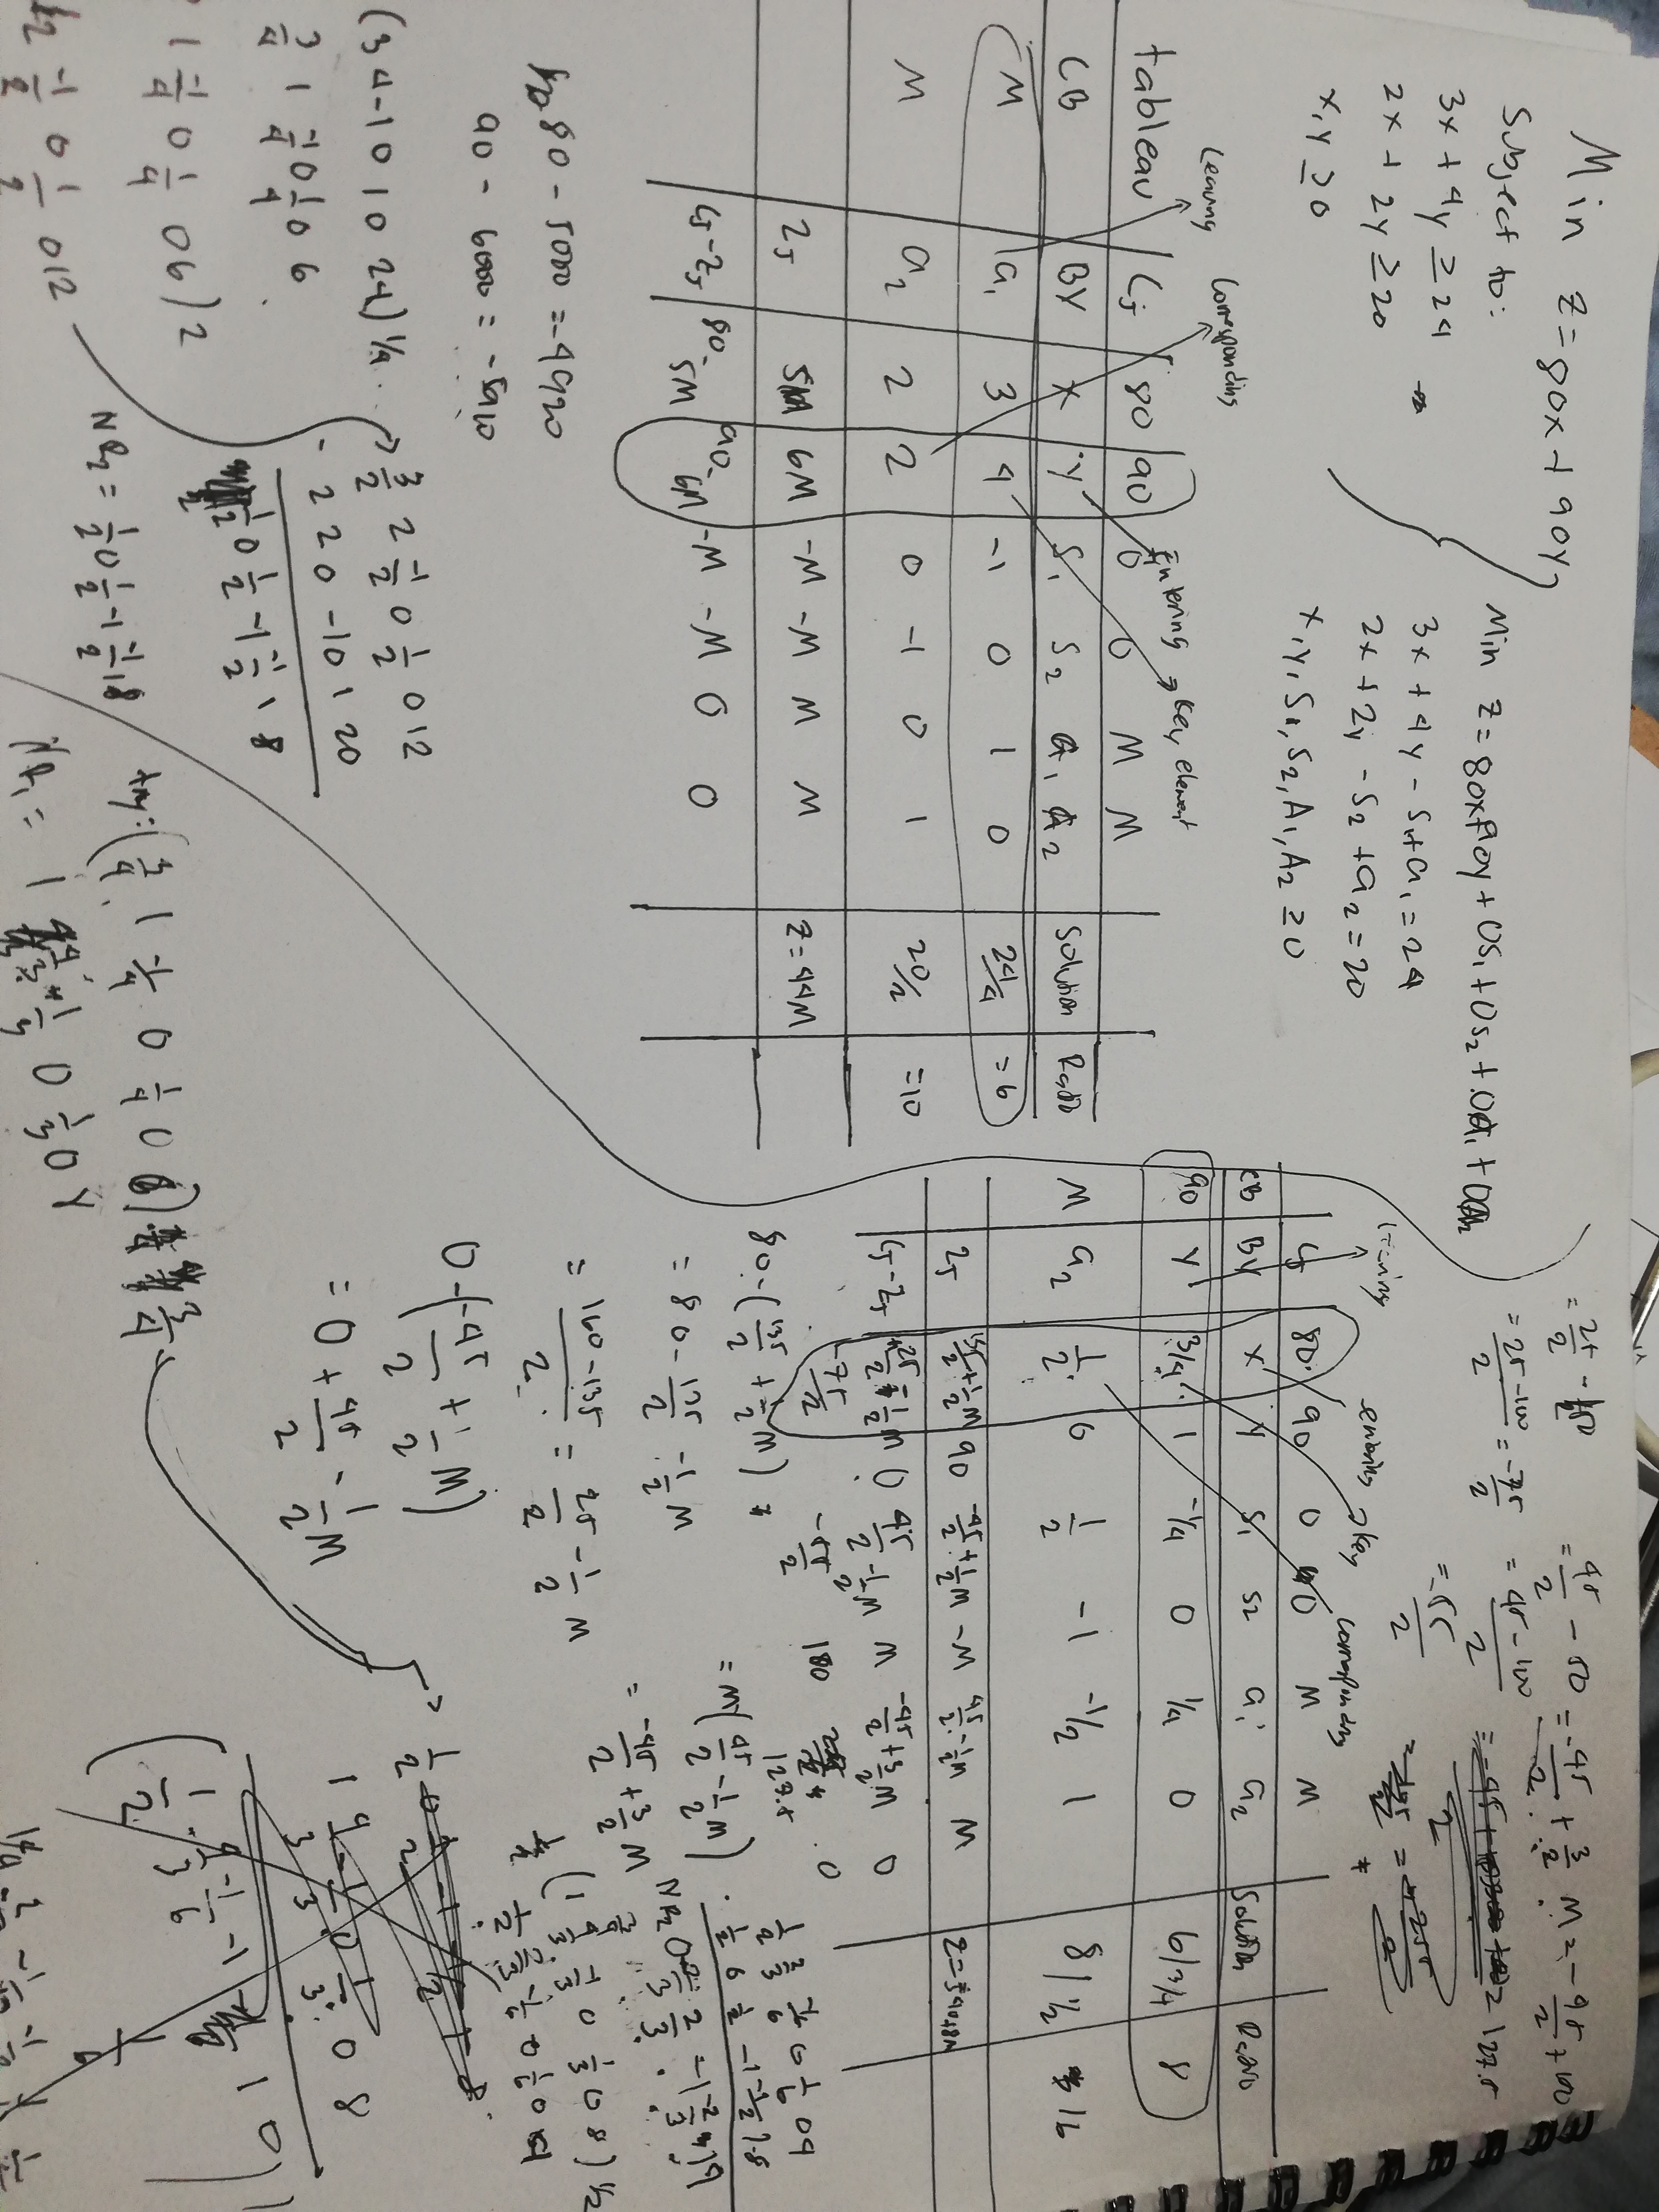 Min Z=80x+90y
Subject to:
3x+4y ≥24
2x+2y ≥20
x,y ≥0
Min Z=80x+90y+0s1+0s2+
3x+4y-s1+a1=24
2x+2y-s2+a2=20
x,y,S1,S2,A1,A2 ≥0
Leaving Corresponding Entering Key element
tableau Cj 80 90 0 0 M M
CB BV x y S1 S2 a1 a2 Solution Ratio
M a1 3 4 -1 0 1 0 24/4 =6
M a2 2 2 0 -1 0 1 20/2 =10
Zj 5M 6M -M -M M M Z=44M
Cj-Zj 80-5M 90-6M -M -M 0 0
80-5000=-4920
90-6000=-5910
(3 4 -1 0 1 0 24) 1/4
3/4 1 -1/4 0 1/4 0 6
1 -1/4 0 1/4 0 6) 2
2 -1/2 0 1/2 0 12
3/2 2 -1/2 0 1/2 0 12
- 2 2 0 -1 0 1 20
1/2 0 1/2 -1 -1/2 1 8
NR2 = 1/2 0 1/2 -1 -1/2 1 8
=25/2 -
=25-100/2 =-75/2
=45/2 - 50
=45-100/2
=-55/2
=-45/2 + 3/2 M
127.5
entering key corresponding
Cj 80 90 0 0 M M
CB BV x y S1 S2 a1 a2 Solution Ratio
90 y 3/4 1 -1/4 0 1/4 0 6/3/4 8
M a2 1/2 0 1/2 -1 -1/2 1 8/1/2 16
Zj 135/2+1/2M 90 -45/2+1/2M -M 45/2-1/2M M Z=540+8M
Cj-Zj 25/2-1/2M 0 45/2-1/2M M -45/2+3/2M 0
-75/2 -55/2 127.5 0
80-(135/2+1/2M)
=80-135/2-1/2M
=160-135/2=25/2-1/2M
0-(-45/2+1/2M)
=0+45/2-1/2M
=M(45/2-1/2M)
=-45/2+3/2M
1/2 2/3 -1/6 0 1/6 0 4
1/2 0 1/2 -1 -1/2 1 8
NR2 0
(1 4/3 -1/3 0 1/3 0 8) 1/2
1/2 2/3 -1/6 0 1/6 0 4
try: (3/4 1 -1/4 0 1/4 0 6) 3/4
NR1 = 1